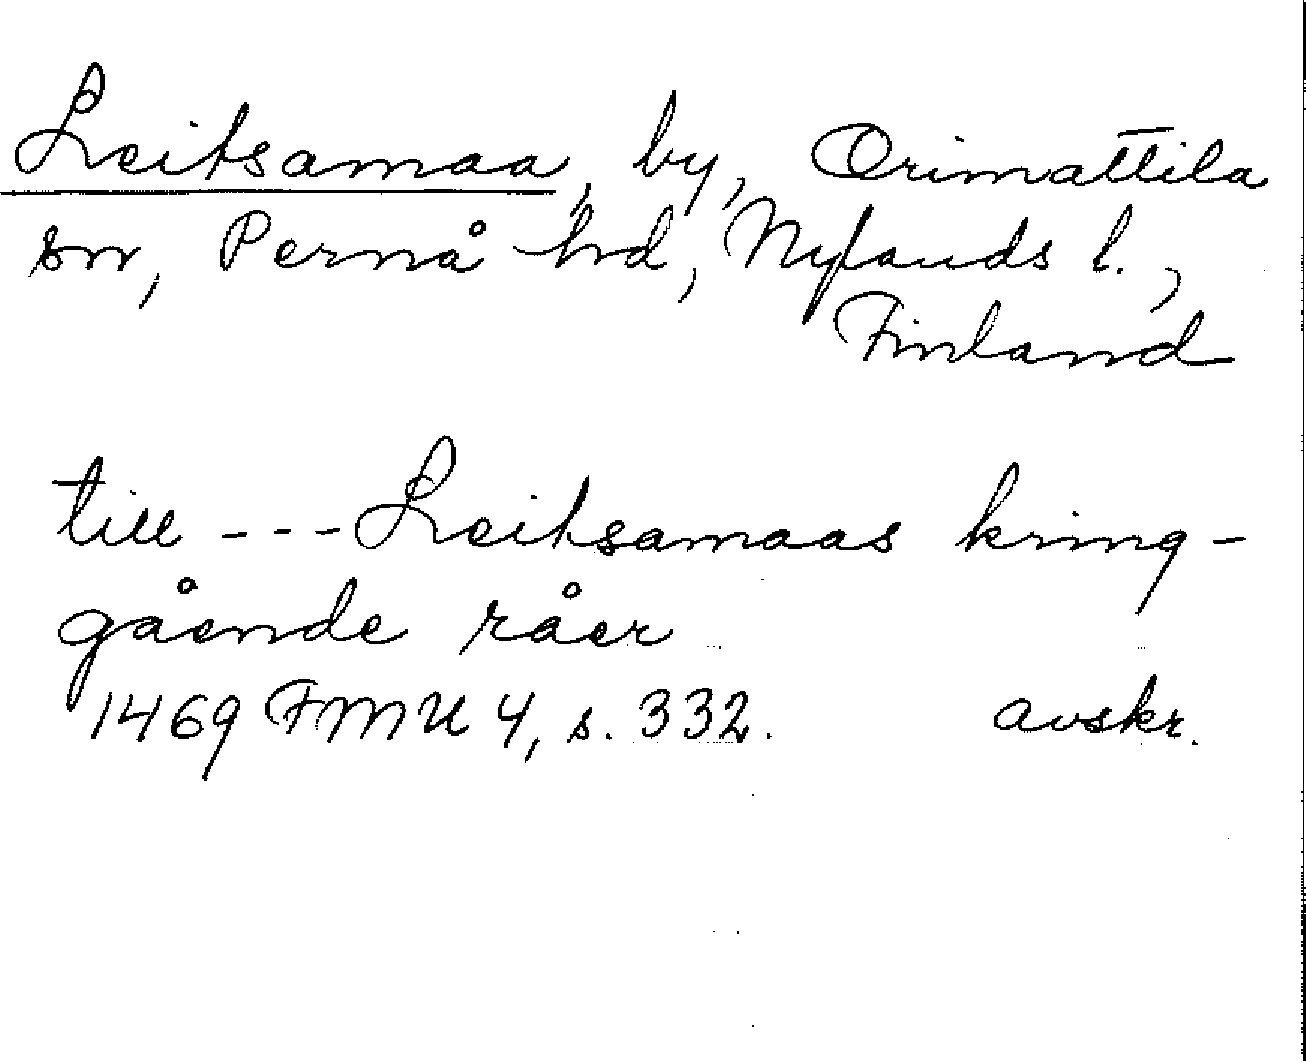 Leitsamaa, by, Orimattila
sn, Pernå hd, Nylands l.,
Finland
till --- Leitsamaas kring-
gående råer
1469 FMU 4, s. 332. avskr.